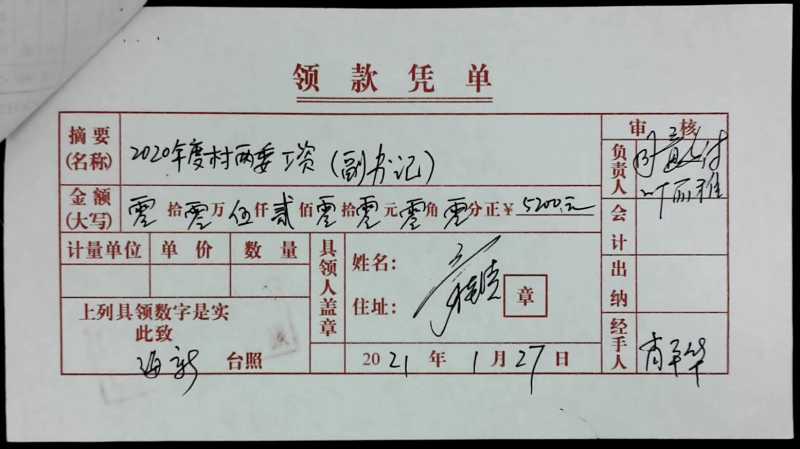 领款凭单
摘要(名称) 2020年度村两委工资(副书记)
审核
负责人
金额(大写) 零拾零万伍仟贰佰零拾零元零角零分正¥5200元
会计
计量单位 单价 数量
具领人盖章
姓名:
住址:
章
出纳
上列具领数字是实
此致
台照
2021年1月27日
经手人